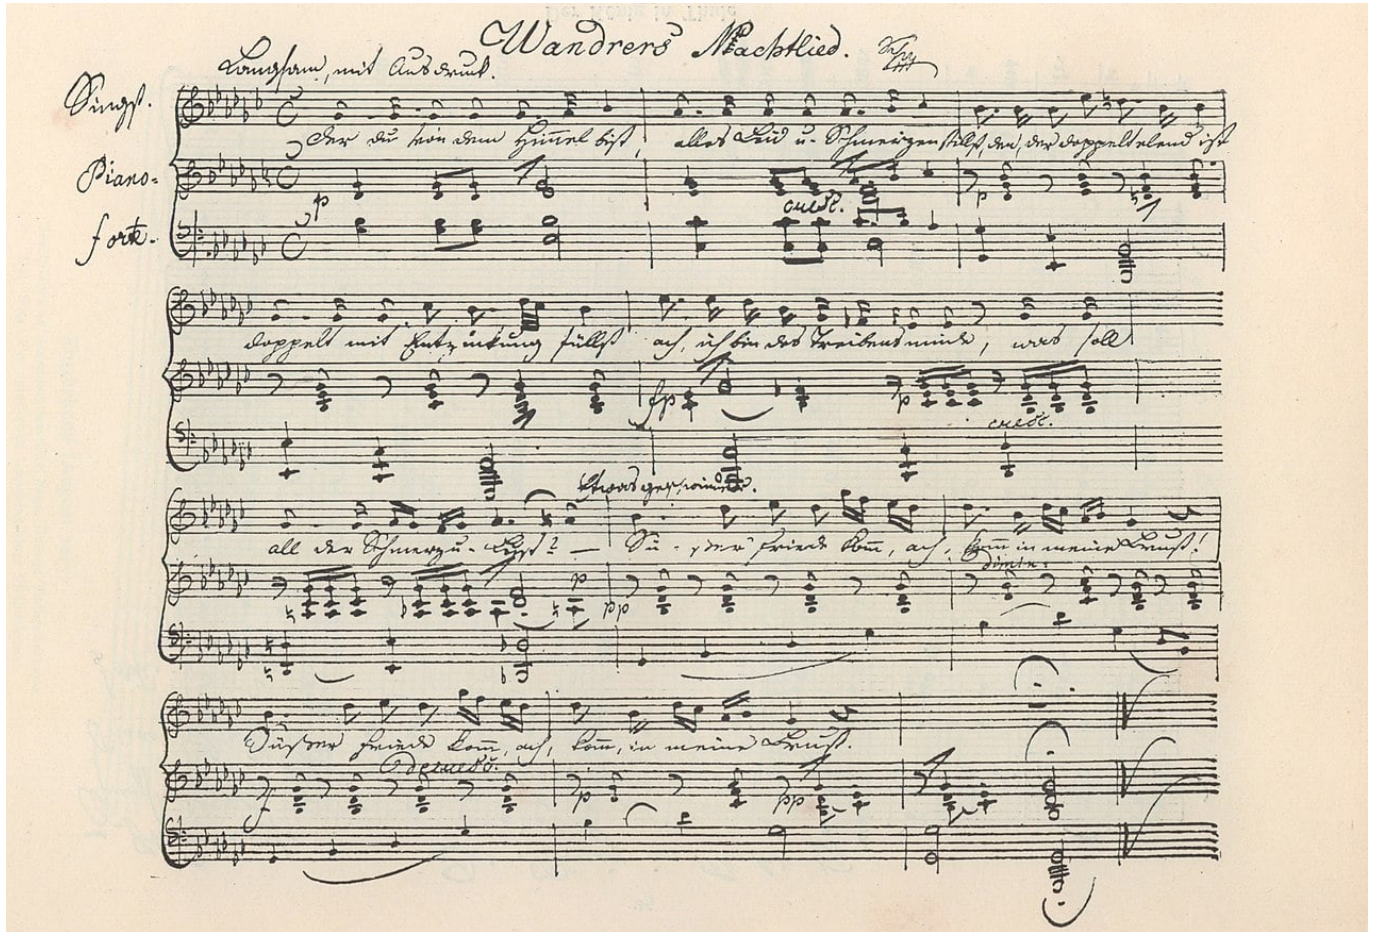 Wandrers Nachtlied.
Langsam, mit Ausdruck.
Singst.
Der du von dem Himmel bist, alles Leid u. Schmerzen stillst, den, der doppelt elend ist
Piano-
p cresc. p
forte.
doppelt mit Entzückung füllst ach, ich bin des Treibens müde, was soll
fp p cresc.
Etwas geschwinder.
all der Schmerz u. Lust? — Sü-ßer Friede kom̄, ach, kom̄ in meine Brust!
dimin.
p pp
Süßer Friede kom̄, ach, kom̄, in meine Brust.
f decresc. p pp